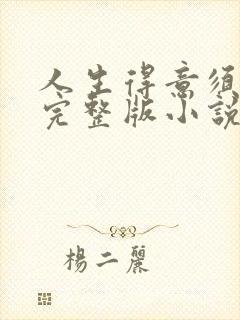 人生得意須
完整版小說
楊二麗